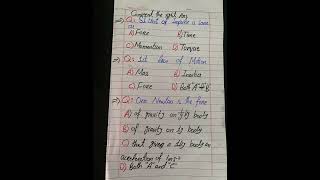 Comment the right Ans
=> Q: SI Unit of Impulse is same as
A) Force B) Time
C) Momentum D) Torque
=> Q: 1st law of Motion
A) Mass B) Inertia
C) Force D) Both "A" & "B"
=> Q: One Newton is the force
A) of gravity on body
B) of gravity on 1g body
C) that gives a 1kg body an
acceleration of 1ms-2
D) Both "A" and "C"